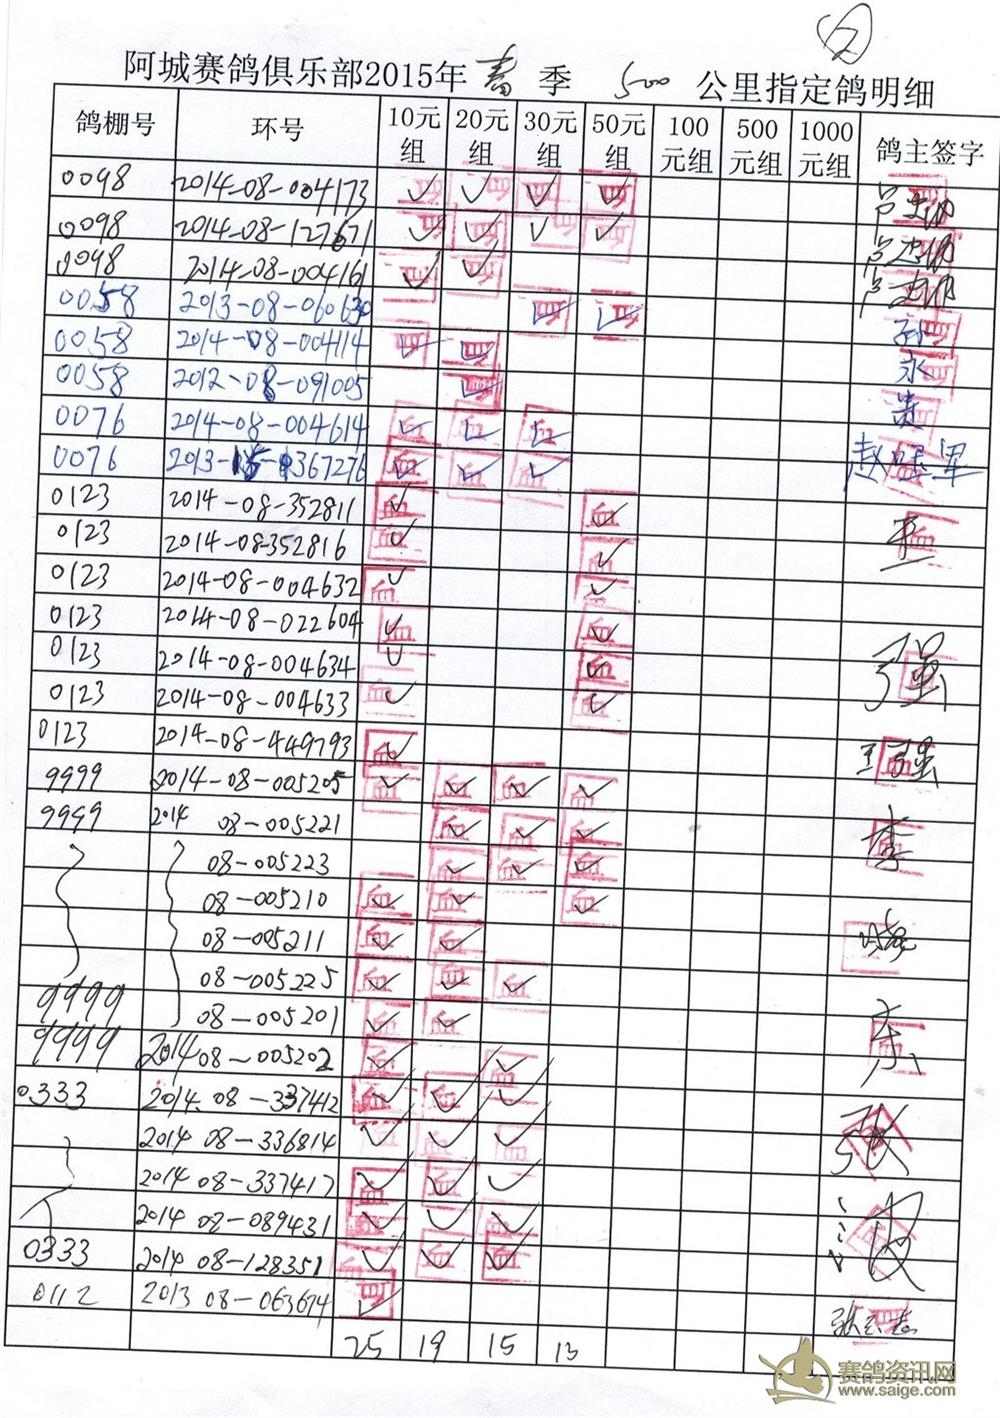 ②
阿城赛鸽俱乐部2015年 春 季 500 公里指定鸽明细
鸽棚号 环号 10元组 20元组 30元组 50元组 100元组 500元组 1000元组 鸽主签字
0098 2014-08-004173 ✓ ✓ ✓ ✓
0098 2014-08-127671 ✓ ✓ ✓ ✓
0098 2014-08-004161 ✓ ✓
0058 2013-08-060630 ✓ ✓ 孙
0058 2014-08-004114 ✓ ✓ 永
0058 2012-08-091005 ✓ 贵
0076 2014-08-004614 ✓ ✓ ✓
0076 2013-15-367276 ✓ ✓ ✓
0123 2014-08-352811 ✓ ✓
0123 2014-08-352816 ✓ ✓ 王
0123 2014-08-004632 ✓ ✓
0123 2014-08-022604 ✓ ✓
0123 2014-08-004634 ✓ ✓ 强
0123 2014-08-004633 ✓ ✓
0123 2014-08-449793 ✓ 王强
9999 2014-08-005205 ✓ ✓ ✓ ✓
9999 2014 08-005221 ✓ ✓ ✓ 李
08-005223 ✓ ✓ ✓
08-005210 ✓ ✓ ✓
08-005211 ✓ ✓
08-005225 ✓ ✓ ✓
9999 08-005201 ✓ ✓ 东
9999 2014 08-005202 ✓ ✓
0333 2014.08-337412 ✓ ✓ ✓
2014 08-336814 ✓ ✓ ✓ 张
2014 08-337417 ✓ ✓ ✓
2014 08-089431 ✓ ✓ ✓
0333 2014 08-128351 ✓ ✓ ✓
0112 2013 08-063674 ✓
25 19 15 13
赛鸽资讯网
www.saige.com